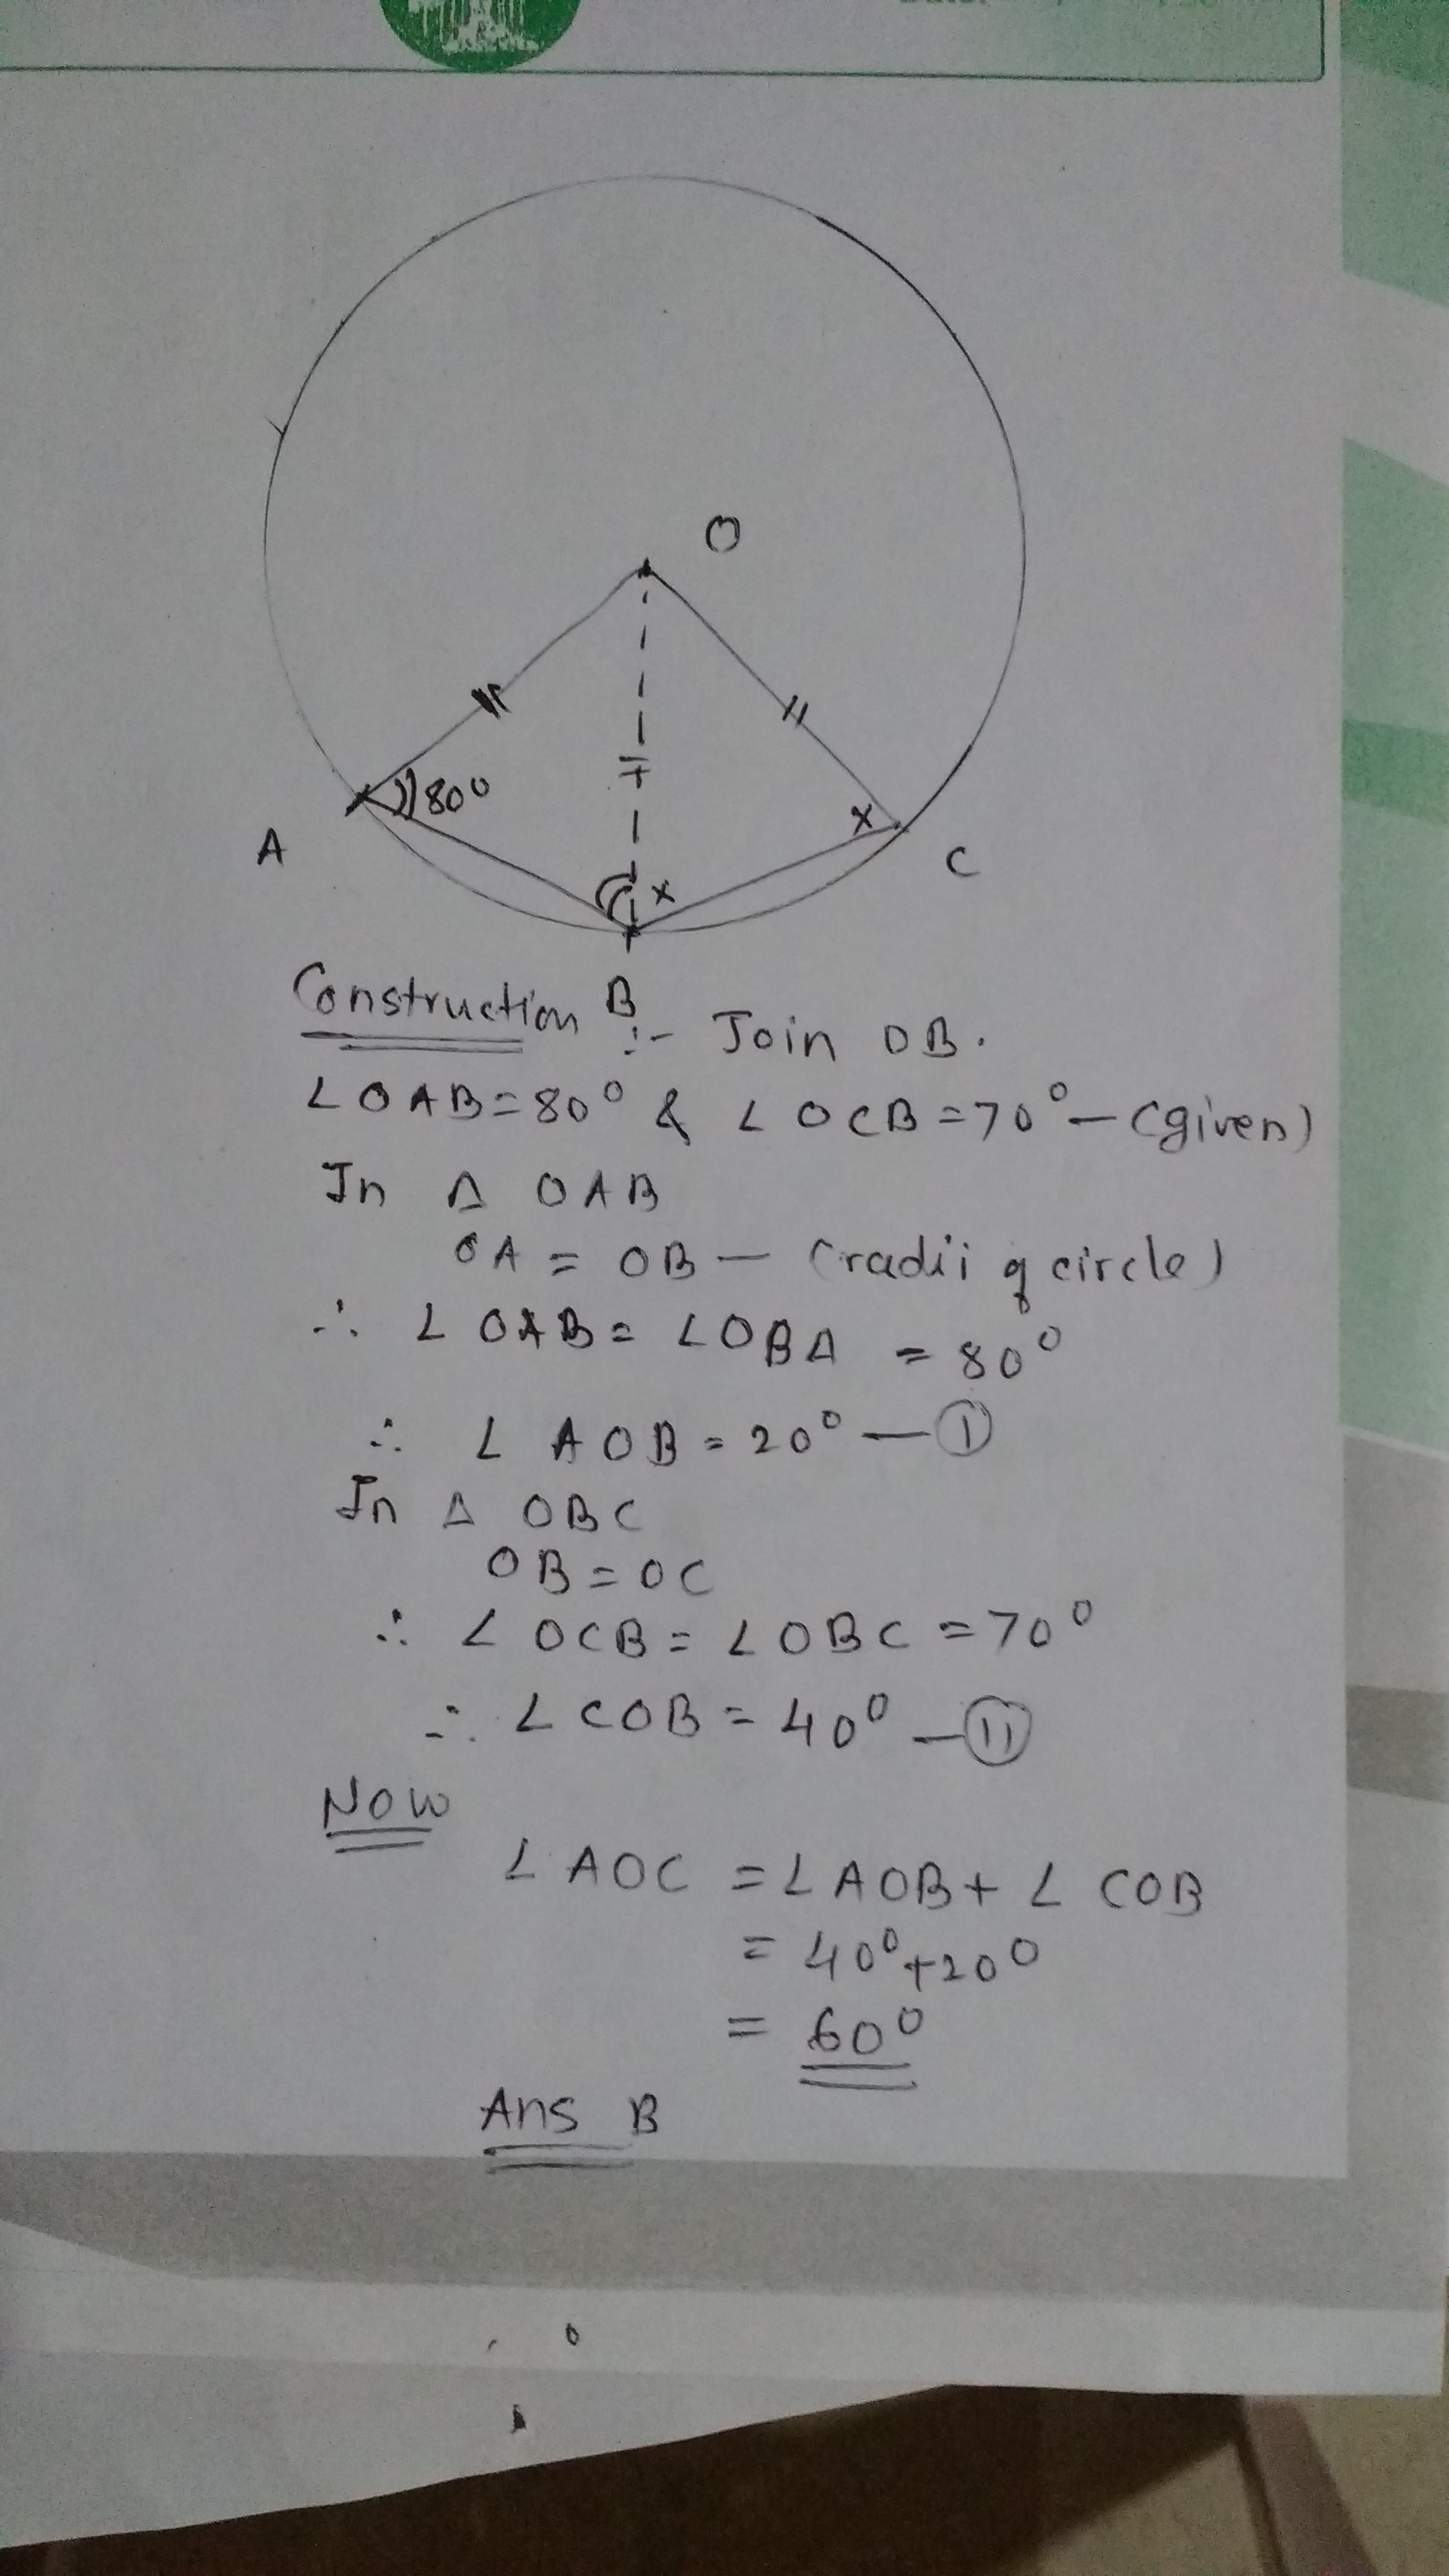 Date:
O
80°
x
A
C
x
B
Construction :- Join OB.
∠OAB=80° & ∠OCB=70° — (given)
In Δ OAB
OA = OB — (radii of circle)
∴ ∠OAB = ∠OBA = 80°
∴ ∠AOB = 20° — ①
In Δ OBC
OB = OC
∴ ∠OCB = ∠OBC = 70°
∴ ∠COB = 40° — ⑪
Now
∠AOC = ∠AOB + ∠COB
= 40° + 20°
= 60°
Ans B